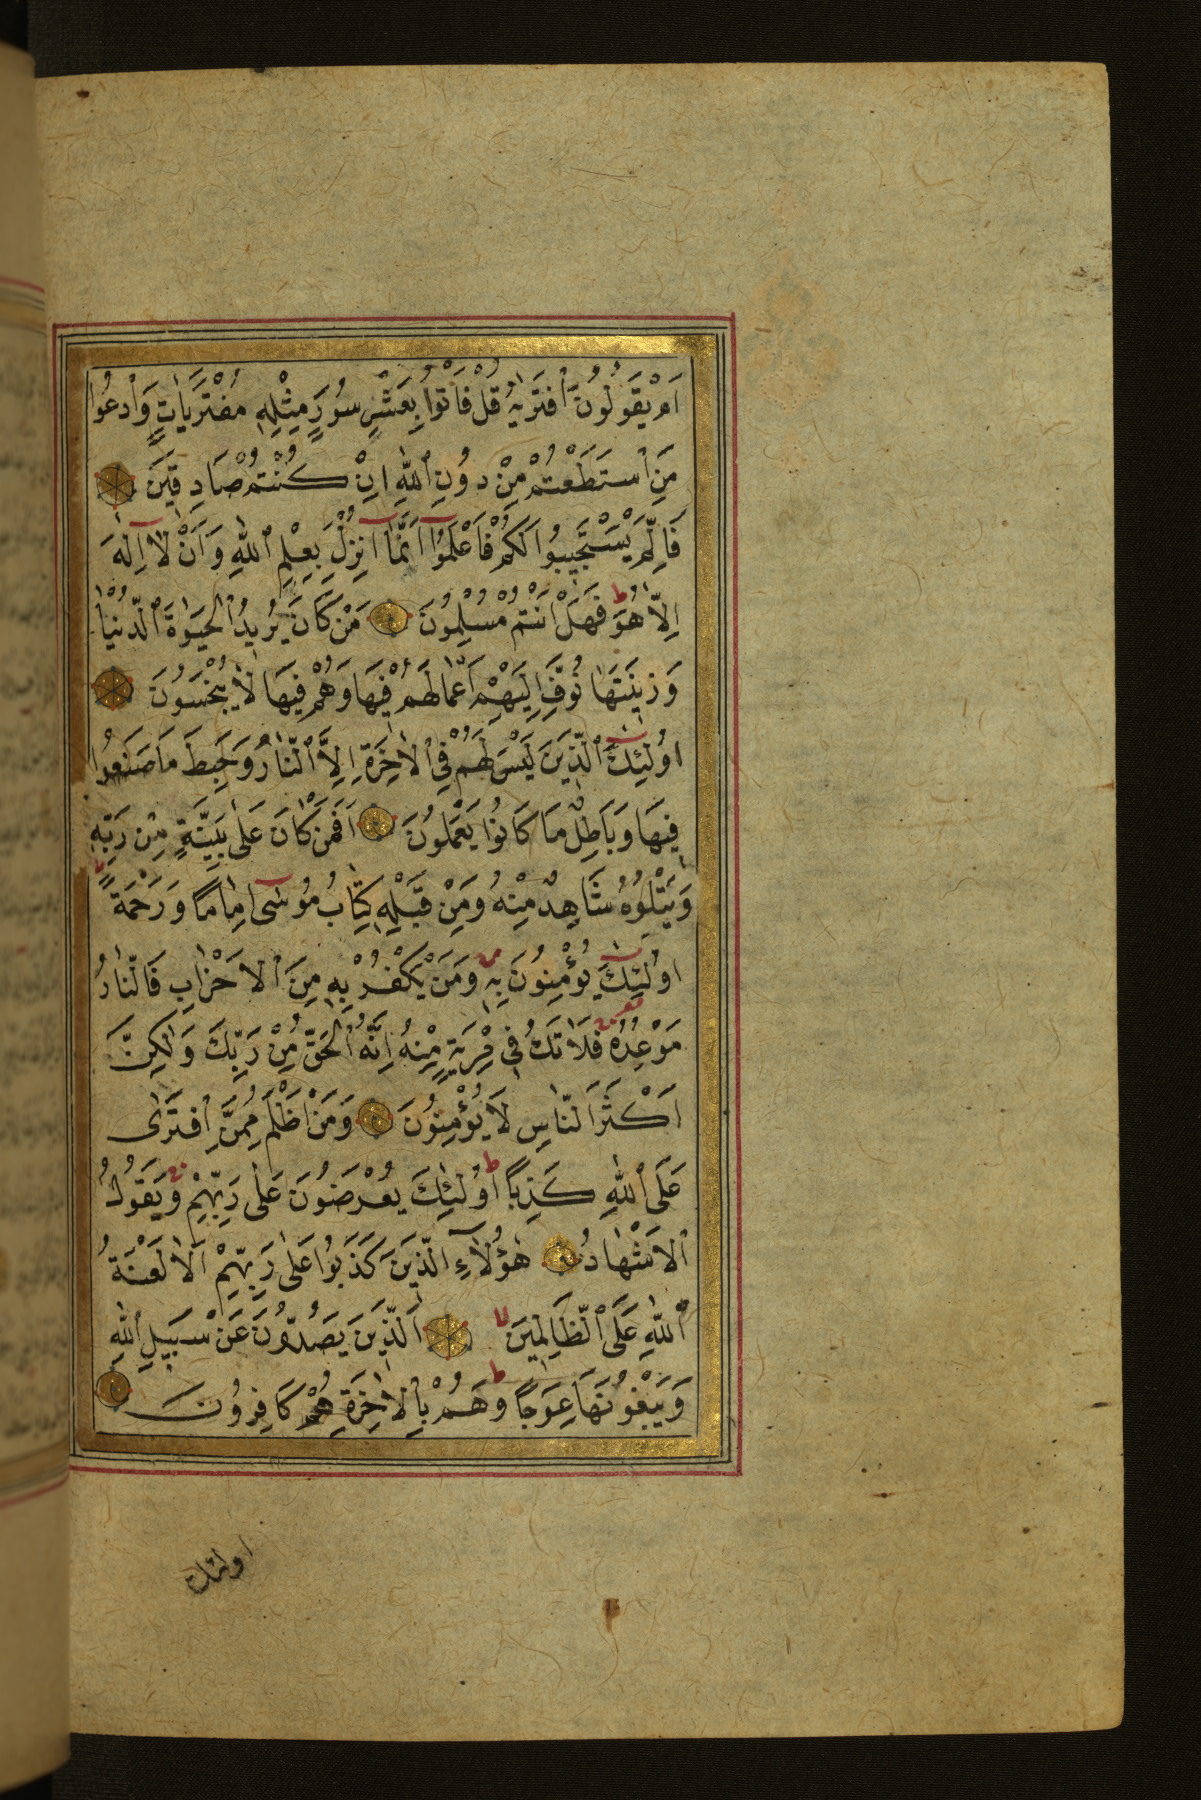 اَمْ يَقُولُونَ ٱفْتَرٰيهُ قُلْ فَأْتُوا بِعَشْرِ سُوَرٍ مِثْلِهِ مُفْتَرَيَاتٍ وَٱدْعُوا
مَنِ ٱسْتَطَعْتُمْ مِنْ دُونِ ٱللّٰهِ اِنْ كُنْتُمْ صَادِقِينَ
فَاِلَّمْ يَسْتَجِيبُوا لَكُمْ فَاعْلَمُوٓا اَنَّمَٓا اُنْزِلَ بِعِلْمِ ٱللّٰهِ وَاَنْ لَٓا اِلٰهَ
اِلَّا هُوَ ط فَهَلْ اَنْتُمْ مُسْلِمُونَ مَنْ كَانَ يُرِيدُ ٱلْحَيٰوةَ ٱلدُّنْيَا
وَزِينَتَهَا نُوَفِّ اِلَيْهِمْ اَعْمَالَهُمْ فِيهَا وَهُمْ فِيهَا لَا يُبْخَسُونَ
اُولٰٓئِكَ ٱلَّذِينَ لَيْسَ لَهُمْ فِي ٱلْاٰخِرَةِ اِلَّا ٱلنَّارُ وَحَبِطَ مَا صَنَعُوا
فِيهَا وَبَاطِلٌ مَا كَانُوا يَعْمَلُونَ اَفَمَنْ كَانَ عَلٰى بَيِّنَةٍ مِنْ رَبِّهِ
وَيَتْلُوهُ شَاهِدٌ مِنْهُ وَمِنْ قَبْلِهِ كِتَابُ مُوسٰٓى اِمَامًا وَرَحْمَةً ط
اُولٰٓئِكَ يُؤْمِنُونَ بِهِ وَمَنْ يَكْفُرْ بِهِ مِنَ ٱلْاَحْزَابِ فَٱلنَّارُ
مَوْعِدُهُ فَلَا تَكُ فِي مِرْيَةٍ مِنْهُ اِنَّهُ ٱلْحَقُّ مِنْ رَبِّكَ وَلٰكِنَّ
اَكْثَرَ ٱلنَّاسِ لَا يُؤْمِنُونَ وَمَنْ اَظْلَمُ مِمَّنِ ٱفْتَرٰى
عَلَى ٱللّٰهِ كَذِبًا ط اُولٰٓئِكَ يُعْرَضُونَ عَلٰى رَبِّهِمْ وَيَقُولُ
ٱلْاَشْهَادُ هٰٓؤُلَٓاءِ ٱلَّذِينَ كَذَبُوا عَلٰى رَبِّهِمْ اَلَا لَعْنَةُ
ٱللّٰهِ عَلَى ٱلظَّالِمِينَ لا اَلَّذِينَ يَصُدُّونَ عَنْ سَبِيلِ ٱللّٰهِ
وَيَبْغُونَهَا عِوَجًا ط وَهُمْ بِٱلْاٰخِرَةِ هُمْ كَافِرُونَ
اولئك